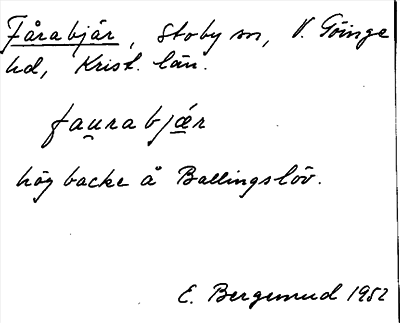 Fårabjär, Stoby sn, V. Göinge
hd, Krist. län.
fau̯rabjæ̲r
hög backe å Ballingslöv.
E. Bergemud 1952